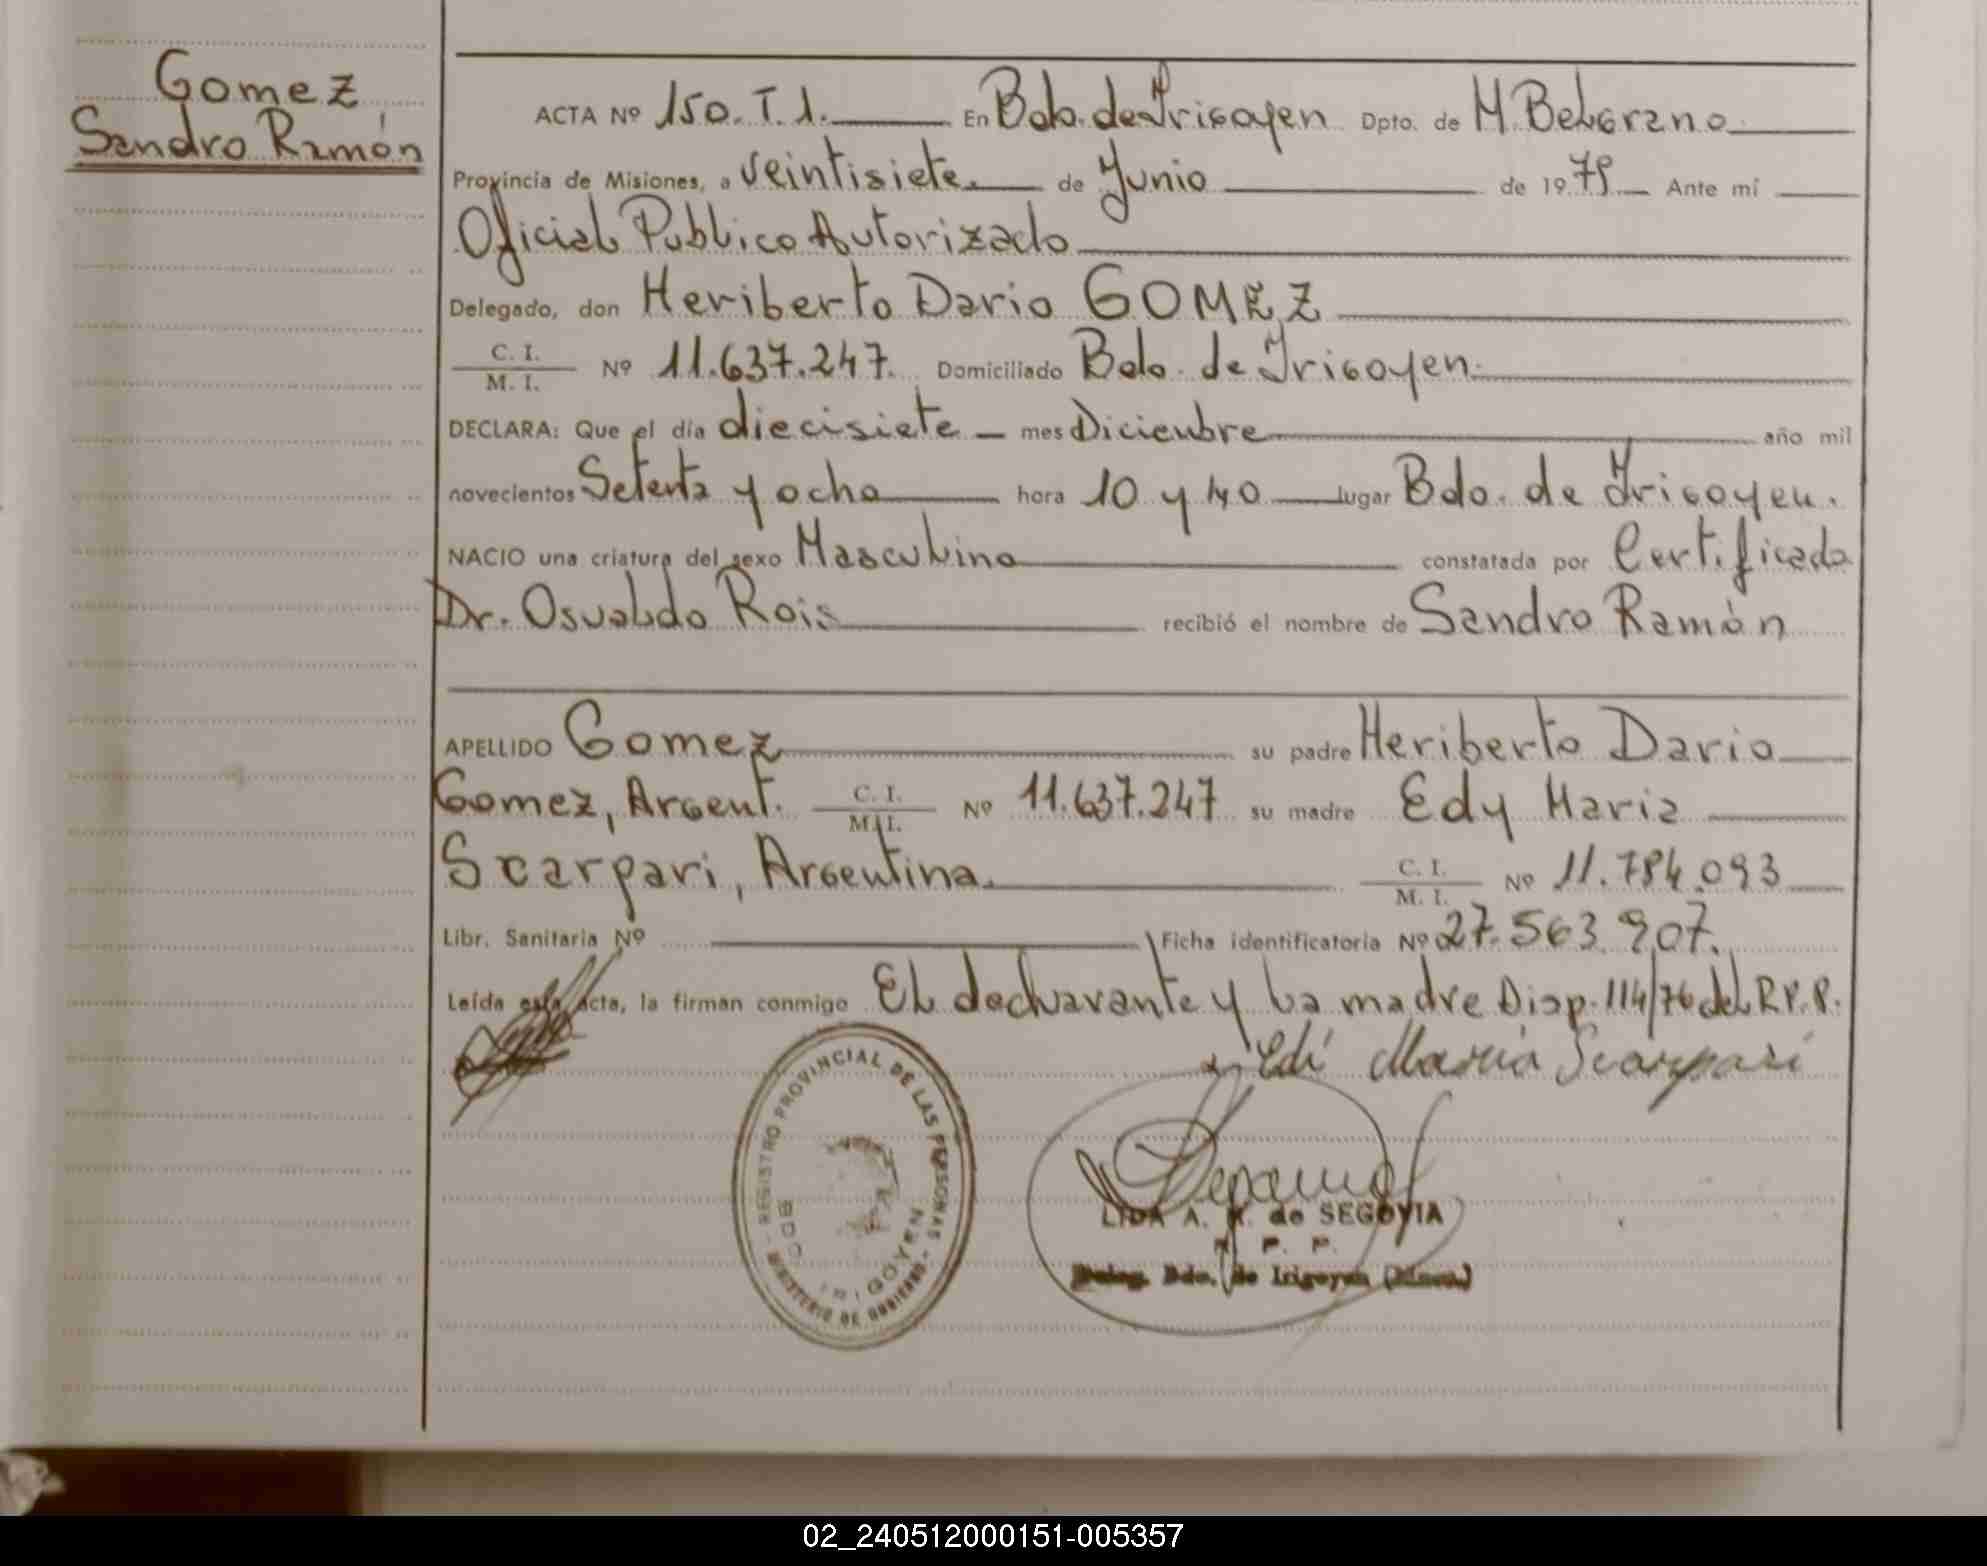 Gomez
Sandro Ramón
ACTA Nº 150. T. 1. En Bdo. de Irigoyen Dpto. de M. Belgrano
Provincia de Misiones, a veintisiete de Junio de 1979 Ante mí
Oficial Publico Autorizado
Delegado, don Heriberto Dario GOMEZ
C. I.
M. I. Nº 11.637.247. Domiciliado Bdo. de Irigoyen.
DECLARA: Que el día diecisiete mes Diciembre año mil
novecientos Setenta y ocho hora 10 y 40 lugar Bdo. de Irigoyen.
NACIO una criatura del sexo Masculino constatada por Certificado
Dr. Osvaldo Rois recibió el nombre de Sandro Ramón
APELLIDO Gomez su padre Heriberto Dario
Gomez, Argent. C. I. M. I. Nº 11.637.247 su madre Edy Maria
Scarpari, Argentina. C. I. M. I. Nº 11.784.093
Libr. Sanitaria Nº Ficha identificatoria Nº 27.563.907.
Leída esta acta, la firman conmigo El declarante y la madre Disp. 114/76 del R.P.P.
Edi Maria Scarpari
REGISTRO PROVINCIAL DE LAS PERSONAS
MINISTERIO DE GOBIERNO
BDO. DE IRIGOYEN
LIDA A. de SEGOVIA
R. P. P.
Deleg. Bdo. de Irigoyen (Mnes.)
02_240512000151-005357